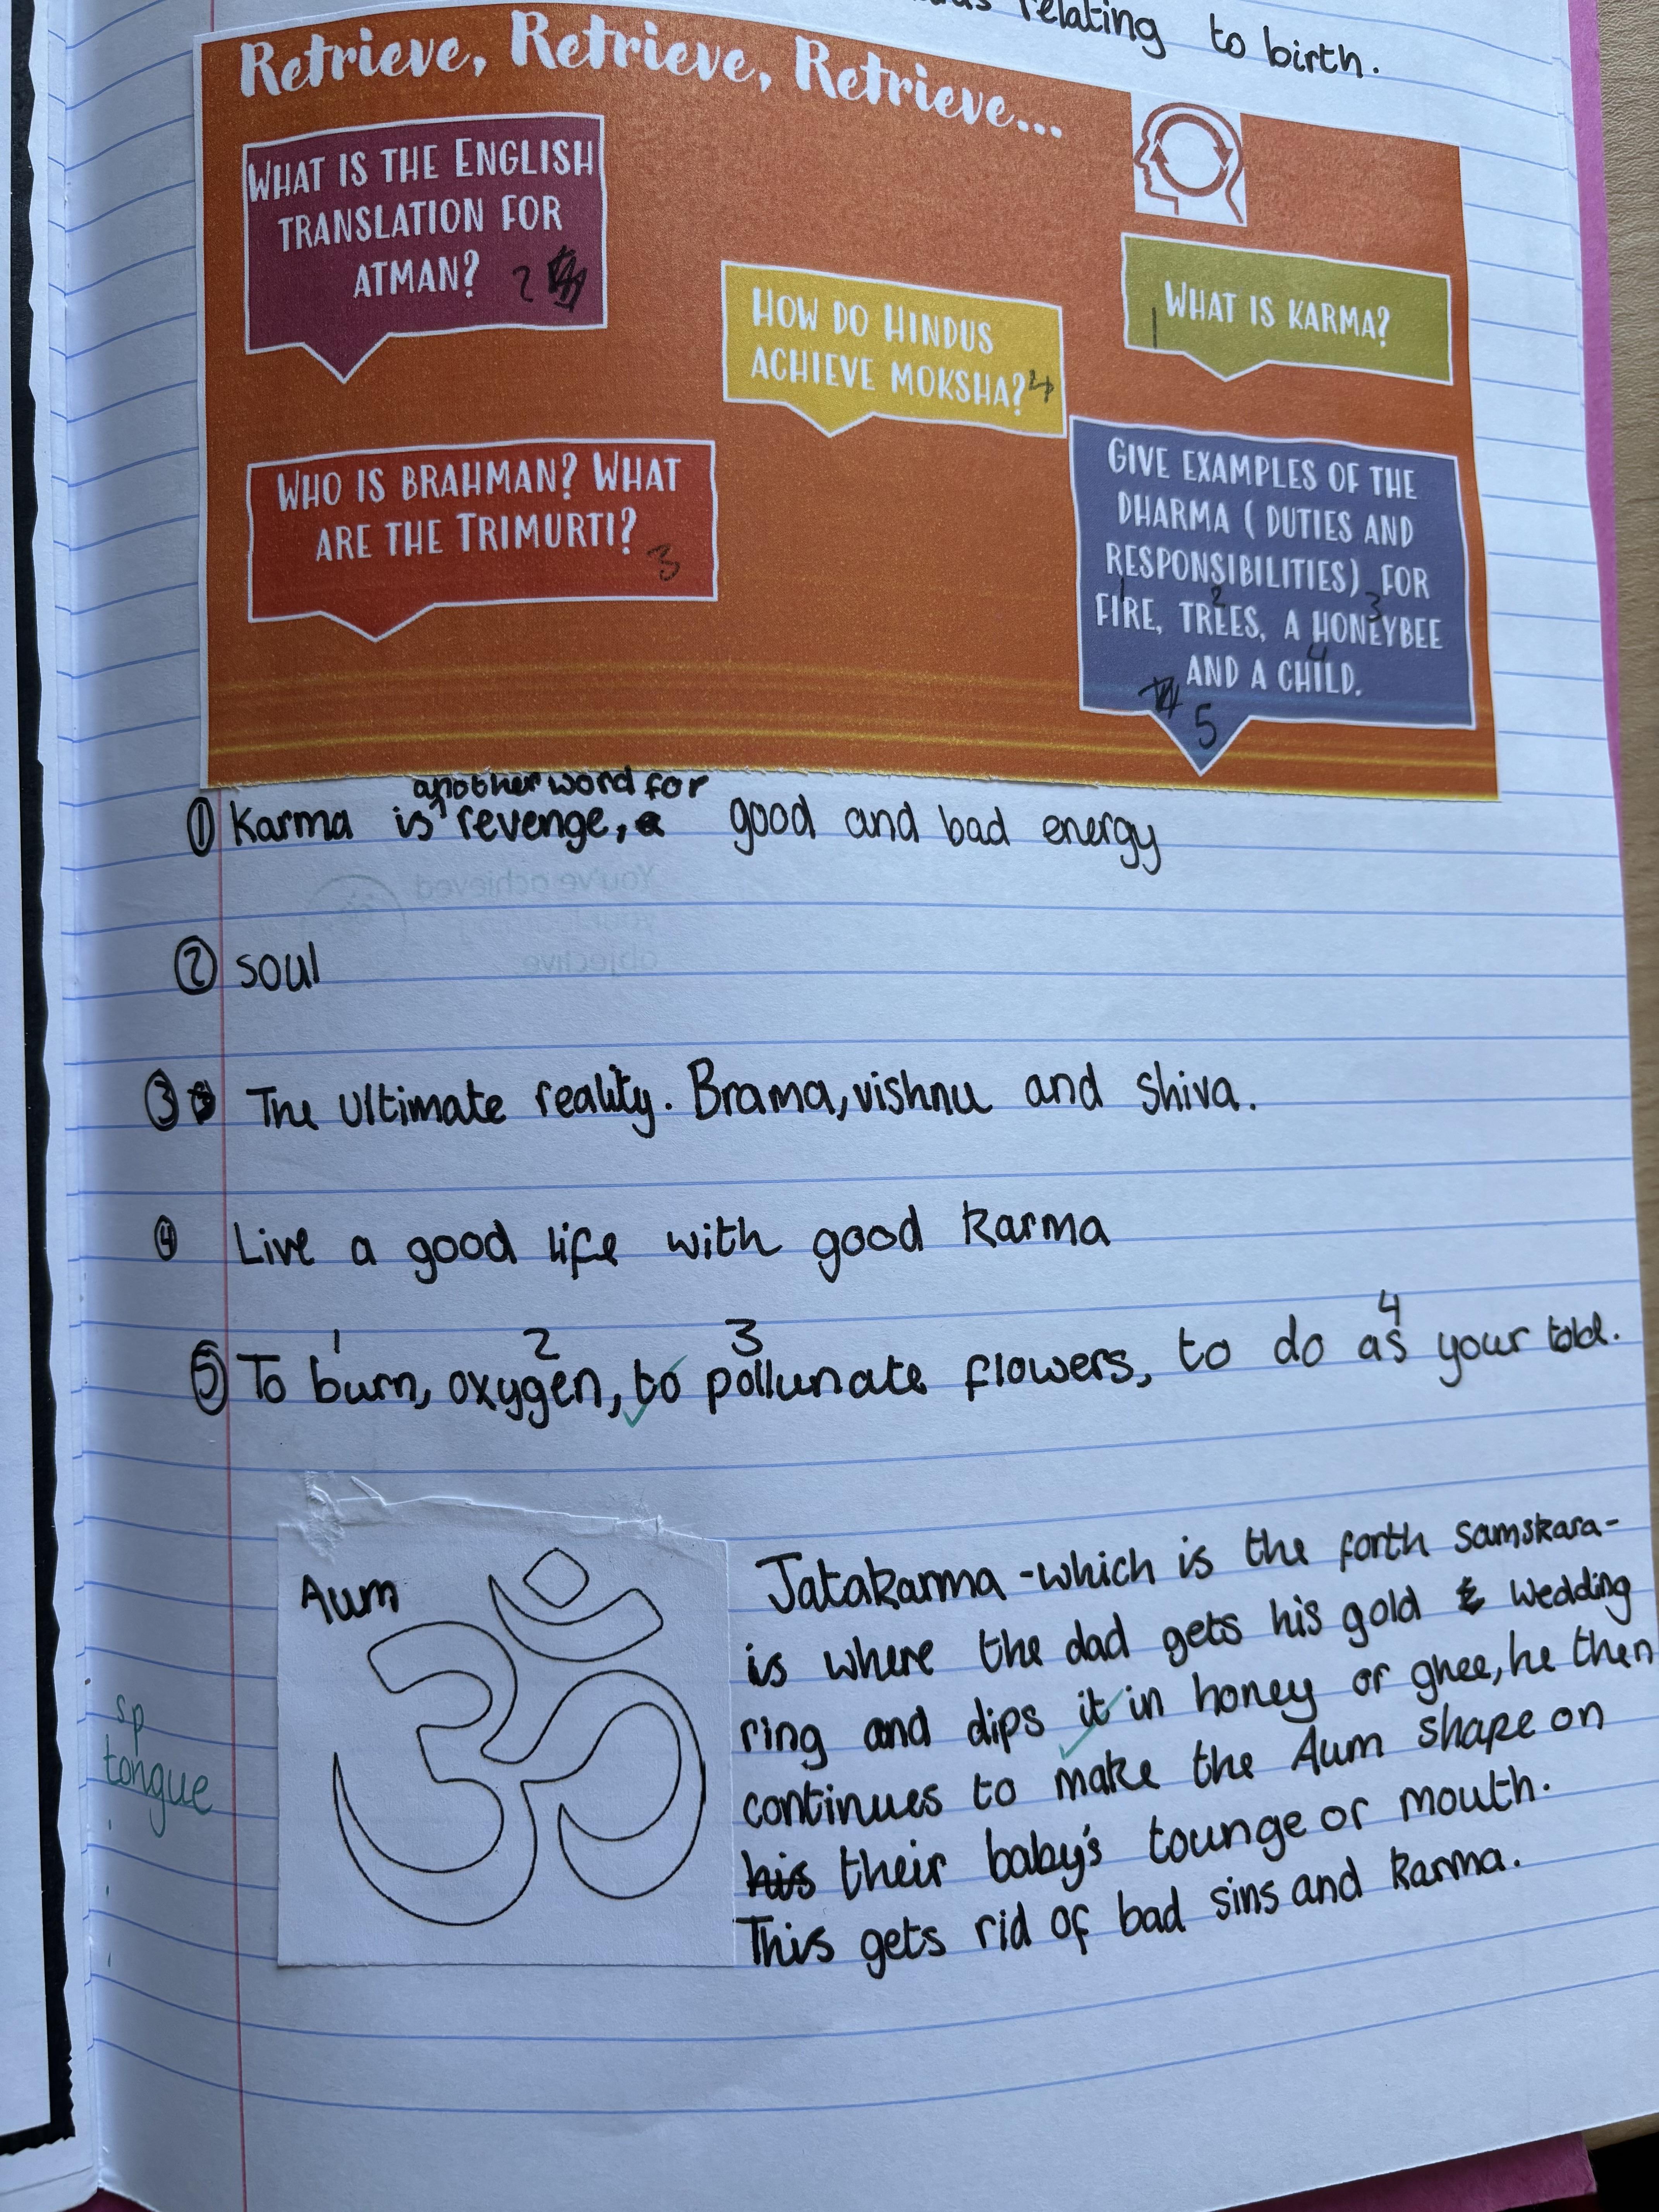 relating to birth.
Retrieve, Retrieve, Retrieve...
WHAT IS THE ENGLISH
TRANSLATION FOR
ATMAN? 2
HOW DO HINDUS
ACHIEVE MOKSHA? 4
WHAT IS KARMA?
1
WHO IS BRAHMAN? WHAT
ARE THE TRIMURTI?
3
GIVE EXAMPLES OF THE
DHARMA ( DUTIES AND
RESPONSIBILITIES) FOR
1 2 3
FIRE, TREES, A HONEYBEE
4
AND A CHILD.
5
another word for
① Karma is ^ revenge, good and bad energy
You've achieved
your learning
objective
② soul
③ The ultimate reality. Brama, vishnu and shiva.
④ Live a good life with good karma
1 2 3 4
⑤ To burn, oxygen, to pollunate flowers, to do as your told.
Aum
Jatakarma - which is the forth samskara -
is where the dad gets his gold wedding
ring and dips it in honey or ghee, he then
continues to make the Aum shape on
his their baby's tounge or mouth.
This gets rid of bad sins and karma.
sp
tongue